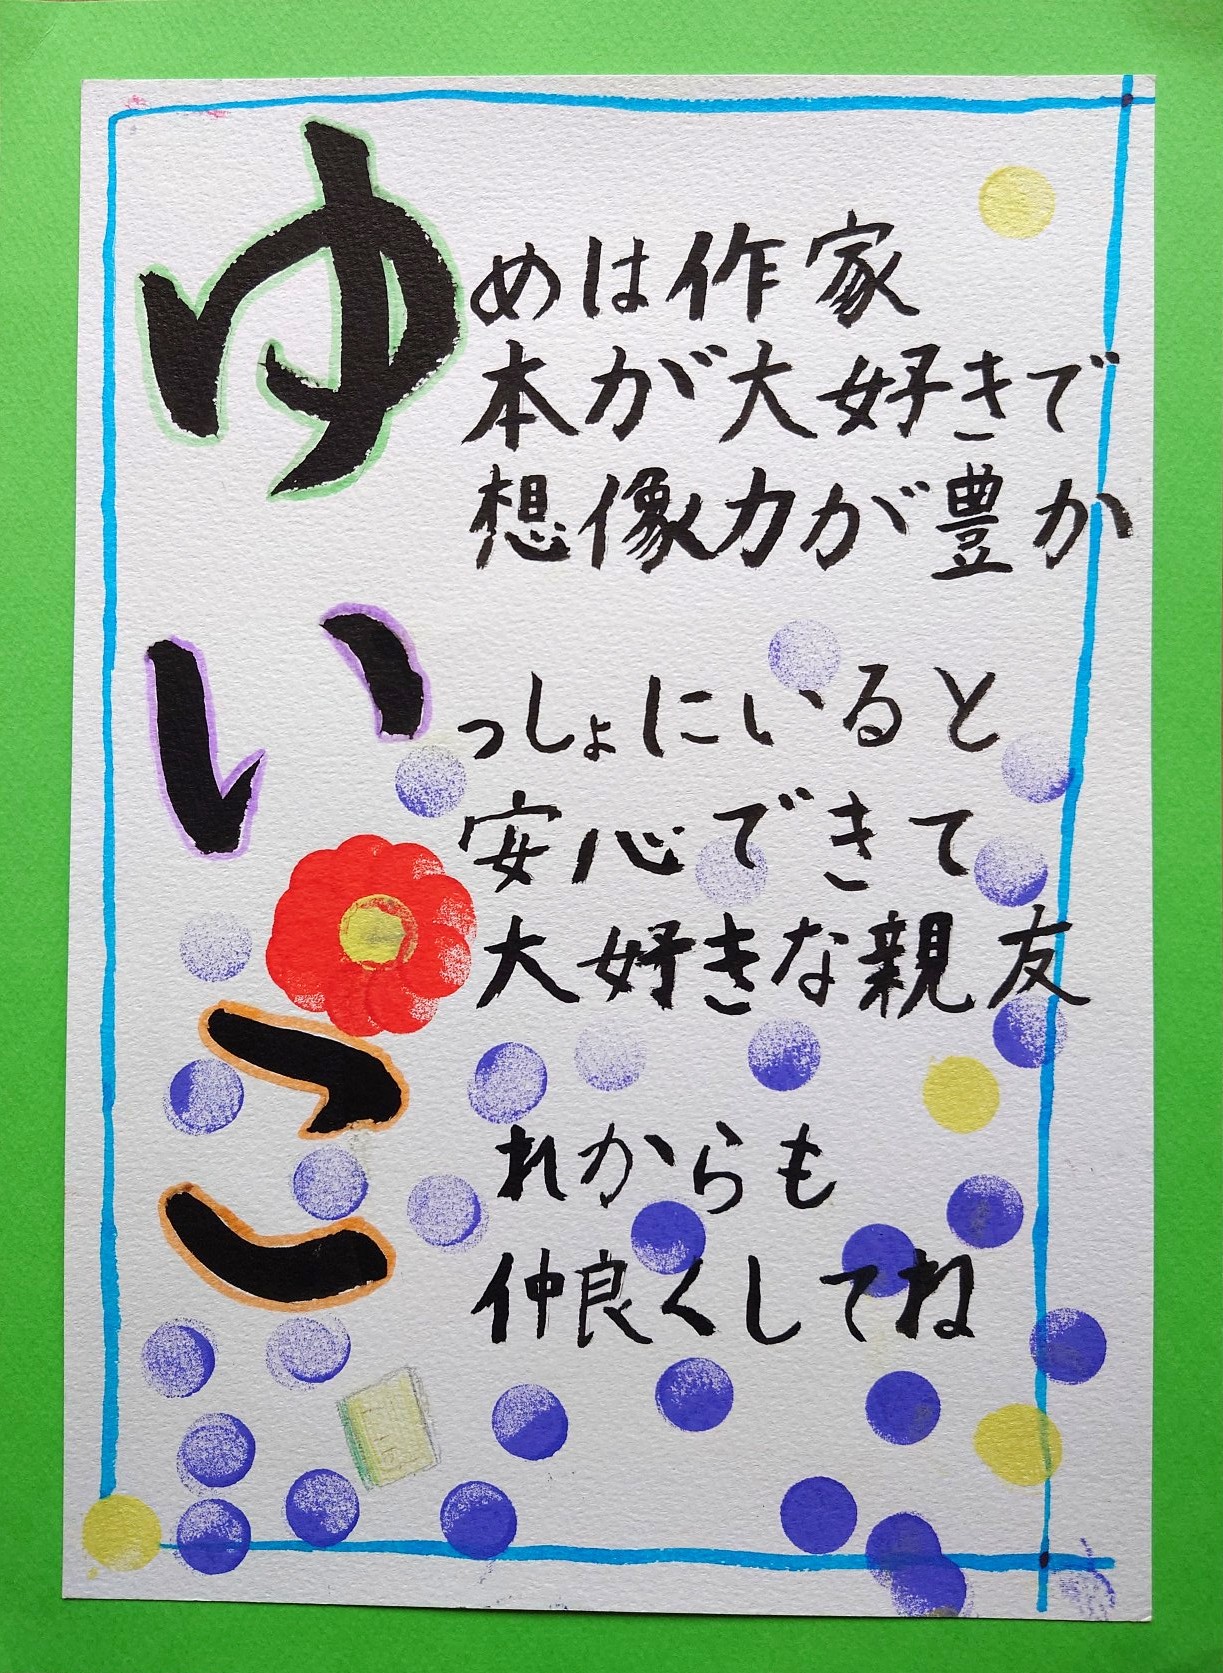 ゆめは作家
本が大好きで
想像力が豊か
いっしょにいると
安心できて
大好きな親友
これからも
仲良くしてね